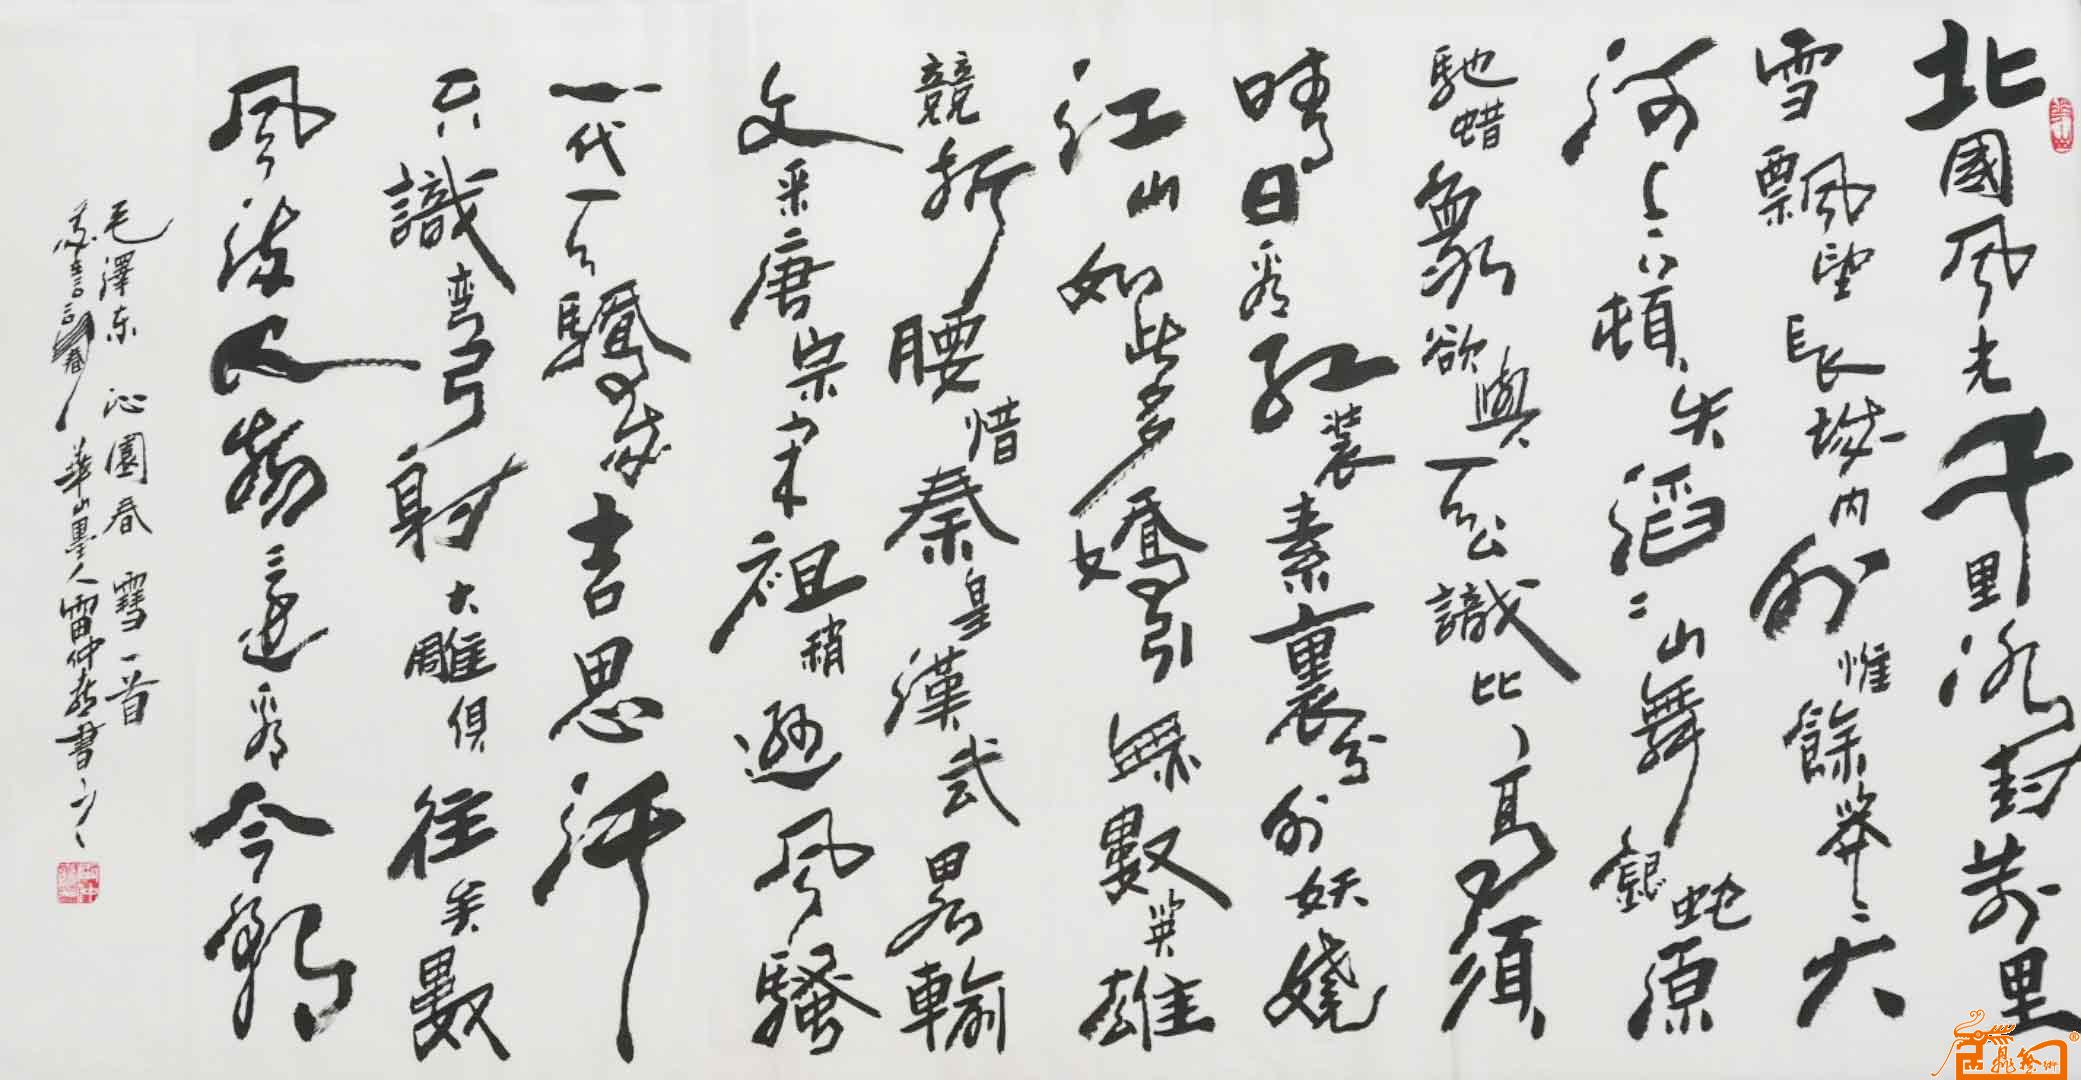 北國風光千里冰封萬里
雪飄望長城内外惟餘莽々大
河上下頓失滔々山舞銀蛇原
馳蜡象欲與天公識比高須
晴日看紅裝素裹分外妖嬈
江山如此多嬌引無數英雄
競折腰惜秦皇漢武畧輸
文采唐宗宋祖稍遜風騷
一代天驕成吉思汗
只識彎弓射大雕俱往矣數
風流人物還看今朝
毛澤东 沁園春 雪一首
春 華山墨人雷仲 書